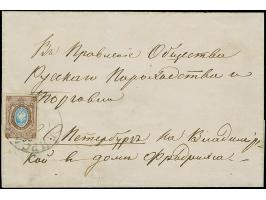 Въ Правленіе Общества
Русскаго Пароходства и
Торговли
С. Петербургъ на Владимір-
ской в домѣ Фридрихса